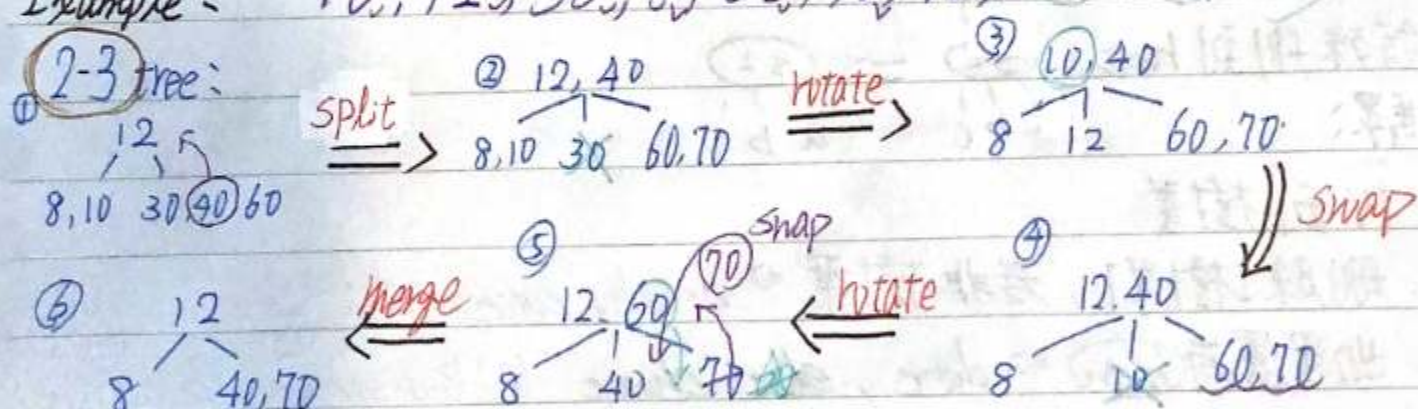 Example:
2-3 tree:
① 12
8,10 30 40 60
split
② 12,40
8,10 30 60,70
rotate
③ 10,40
8 12 60,70
swap
④ 12.40
8 10 60,70
rotate
⑤ 12. 60 70 swap
8 40 70
merge
⑥ 12
8 40,70